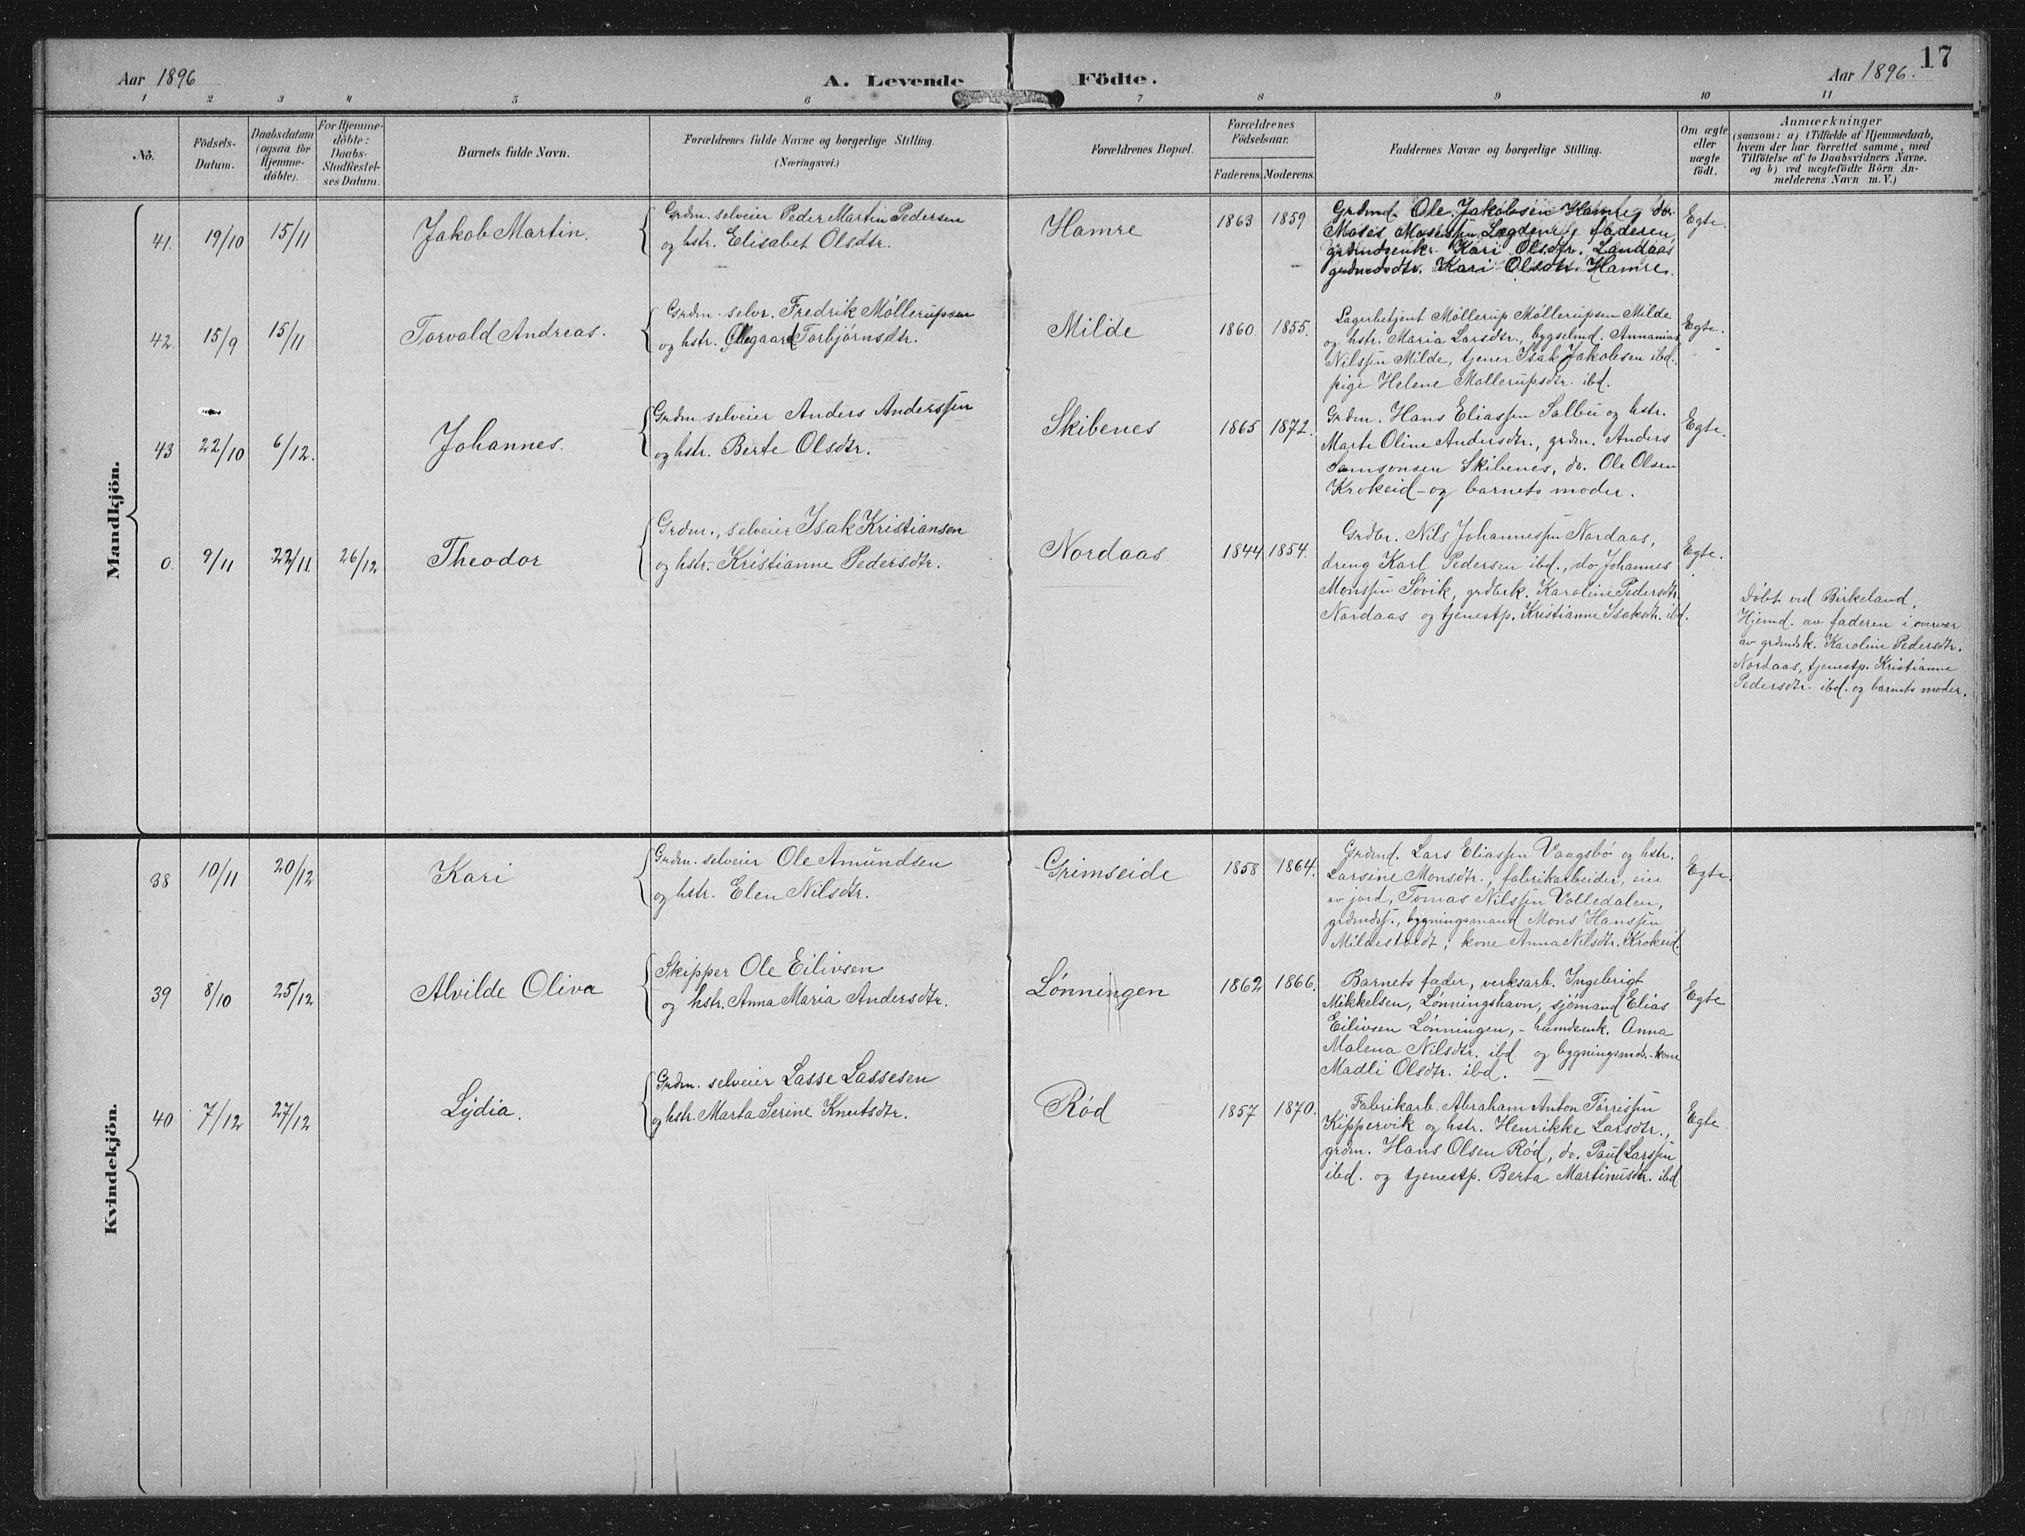 17
Aar 1896
A. Levende
Födte.
Aar 1896.
1 2 3 4 5 6 7 8 9 10 11
No.
Födsels-
Datum.
Daabsdatum
(ogsaa for
Hjemme-
döbte).
For Hjemme-
döbte:
Daabs-
Stadfæstel-
ses Datum.
Barnets fulde Navn.
Forældrenes fulde Navne og borgerlige Stilling.
(Næringsvei.)
Forældrenes Bopæl.
Forældrenes
Födselsaar.
Faderens. Moderens.
Faddernes Navne og borgerlige Stilling.
Om ægte
eller
uægte
født.
Anmærkninger
(saasom: a) i Tilfælde af Hjemmedaab,
hvem der har forrettet samme, med
Tilföielse af to Daabsvidners Navne.
og b) ved uægtefödte Börn An-
melderens Navn m. V.)
Mandkjön.
41. 19/10 15/11 Jakob Martin.
Grdm. selveier Peder Martin Pedersen
og hstr. Elisabet Olsdtr.
Hamre 1863 1859
Grdmd. Ole Jakobsen Hamre, do.
Moses Mosessen Lægden, faderen,
grdmdsenk. Kari Olsdtr. Landaas
grdmdsdtr. Kari Olsdtr. Hamre.
Egte.
42. 15/9 15/11 Torvald Andreas.
Grdm. selvr. Fredrik Möllerupsen
og hstr. Ollegaard Torbjörnsdtr.
Milde 1860 1855.
Lagerbetjent Möllerup Möllerupsen Milde
og hstr. Maria Larsdtr., bygselmd. Annanias
Nilssen Milde, tjener Isak Jakobsen ibd.
pige Helene Möllerupsdtr. ibd.
Egte.
43 22/10 6/12. Johannes.
Grdm. selveier Anders Anderssen
og hstr. Berte Olsdtr.
Skibenes 1865 1872.
Grdm. Hans Eliassen Salbu og hstr.
Marte Oline Andersdtr., grdm. Anders
Samsonsen Skibenes, do. Ole Olsen
Krokeid - og barnets moder.
Egte.
0. 9/11 22/11 26/12 Theodor
Grdm., selveier Isak Kristiansen
og hstr. Kristianne Pedersdtr.
Nordaas 1844 1854.
Grdbr. Nils Johannessen Nordaas,
dreng Karl Pedersen ibd., do Johannes
Monssen Søvik, grdbrk. Karoline Pedersdtr.
Nordaas og tjenestp. Kristianne Isaksdtr. ibd.
Egte.
Döbt ved Birkeland.
Hjemd. av faderen i overvær
av grdmdsk. Karoline Pedersdtr.
Nordaas, tjenestp. Kristianne
Pedersdtr. ibd. og barnets moder.
Kvindekjön.
38 10/11 20/12 Kari
Grdm. selveier Ole Amundsen
og hstr. Elen Nilsdtr.
Grimseide 1858 1864.
Grdmd. Lars Eliassen Vaagsbø og hstr.
Larsine Monsdtr., fabrikarbeider, eier
av jord, Tomas Nilssen Volledalen,
bygningsmand Mons Hanssen
kone Anna Nilsdtr. Krokeid.
Egte.
39 8/10 25/12 Alvilde Oliva
Skipper Ole Eilivsen
og hstr. Anna Maria Andersdtr.
Lønningen 1862 1866.
Barnets fader, verksarb. Ingebrigt
Mikkelsen, Lønningshavn, sjömand Elias
Eilivsen Lønningen, - husmdsenk. Anna
Malena Nilsdtr. ibd. og bygningsmds. kone
Madli Olsdtr. ibd.
Egte
40 7/12 27/12 Lydia.
Grdm. selveier Lasse Lassesen
og hstr. Marta Serine Knutsdtr.
Rød 1857 1870.
Fabrikarb. Abraham Anton Tørrissen
Kippervik og hstr. Henrikke Larsdtr.,
grdm. Hans Olsen Rød, do. Paul Larssen
ibd. og tjenestp. Berta Martinusdtr. ibd
Egte